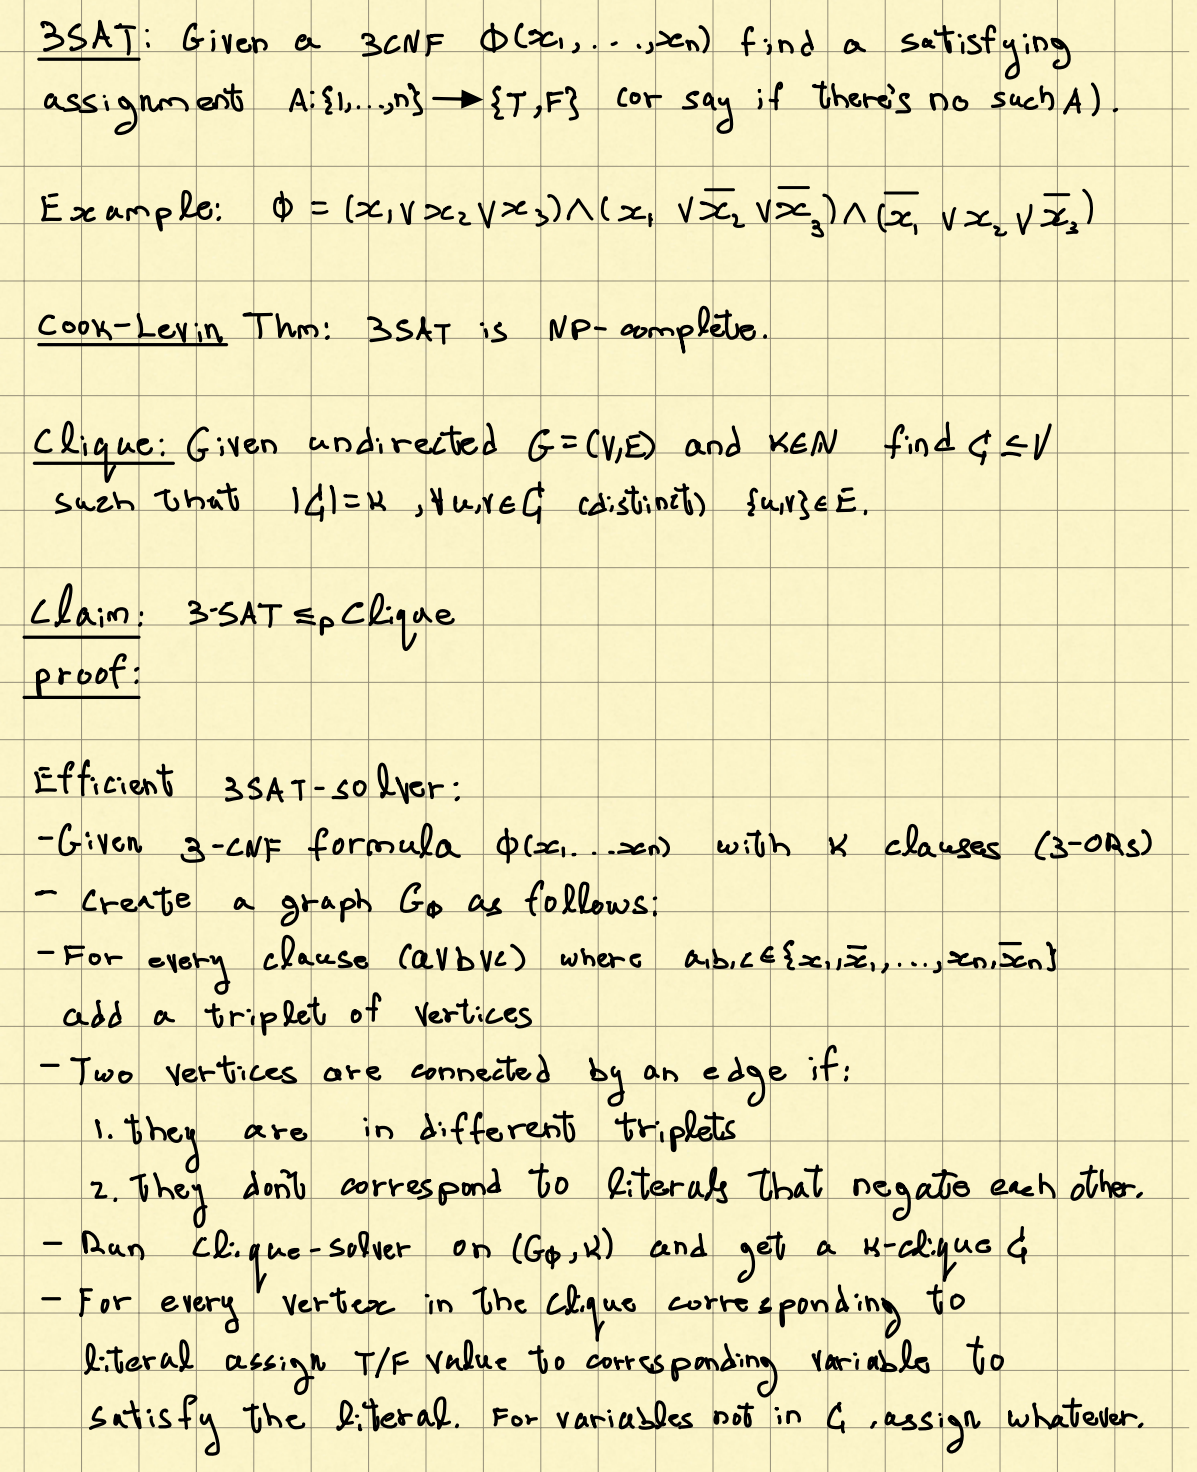 3SAT: Given a 3CNF Φ(x₁,...,xₙ) find a satisfying
assignment A:{1,...,n}→{T,F} (or say if there's no such A).
Example: Φ = (x₁ ∨ x₂ ∨ x₃) ∧ (x₁ ∨ x̄₂ ∨ x̄₃) ∧ (x̄₁ ∨ x₂ ∨ x̄₃)
Cook-Levin Thm: 3SAT is NP-complete.
Clique: Given undirected G=(V,E) and K∈ℕ find C ⊆ V
such that |C|=K, ∀u,v∈C (distinct) {u,v}∈E.
Claim: 3-SAT ≤ₚ Clique
proof:
Efficient 3SAT-solver:
-Given 3-CNF formula Φ(x₁...xₙ) with K clauses (3-ORs)
- Create a graph G_Φ as follows:
-For every clause (a∨b∨c) where a,b,c∈{x₁,x̄₁,...,xₙ,x̄ₙ}
add a triplet of vertices
- Two vertices are connected by an edge if:
1. they are in different triplets
2. They don't correspond to literals that negate each other.
- Run Clique-solver on (G_Φ,K) and get a K-clique C
- For every vertex in the clique corresponding to
literal assign T/F value to corresponding variable to
satisfy the literal. For variables not in C, assign whatever.